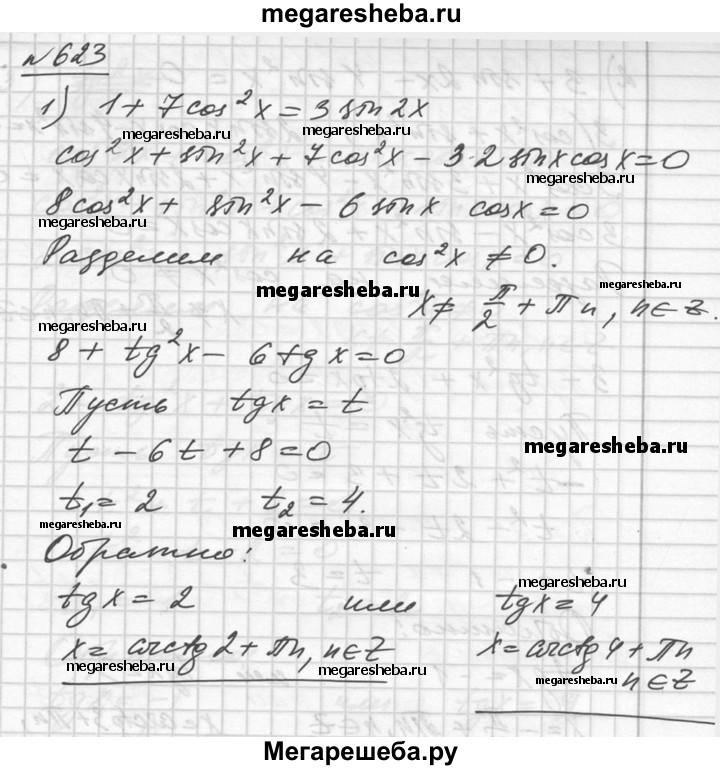 megaresheba.ru
№623
1) 1 + 7cos²x = 3 sin2x
megaresheba.ru megaresheba.ru
cos²x + sin²x + 7cos²x - 3·2 sinx cosx = 0
megaresheba.ru
8cos²x + sin²x - 6 sinx cosx = 0
megaresheba.ru
Разделим на cos²x ≠ 0.
megaresheba.ru megaresheba.ru
x ≠ π/2 + πn, n∈Z.
megaresheba.ru
8 + tg²x - 6tgx = 0
Пусть tgx = t
t - 6t + 8 = 0
megaresheba.ru
t₁ = 2 t₂ = 4.
megaresheba.ru megaresheba.ru
Обратно:
megaresheba.ru
tgx = 2 или tgx = 4
x = arctg2 + πn, n∈Z x = arctg4 + πn
megaresheba.ru megaresheba.ru
n∈Z
Мегарешеба.ру